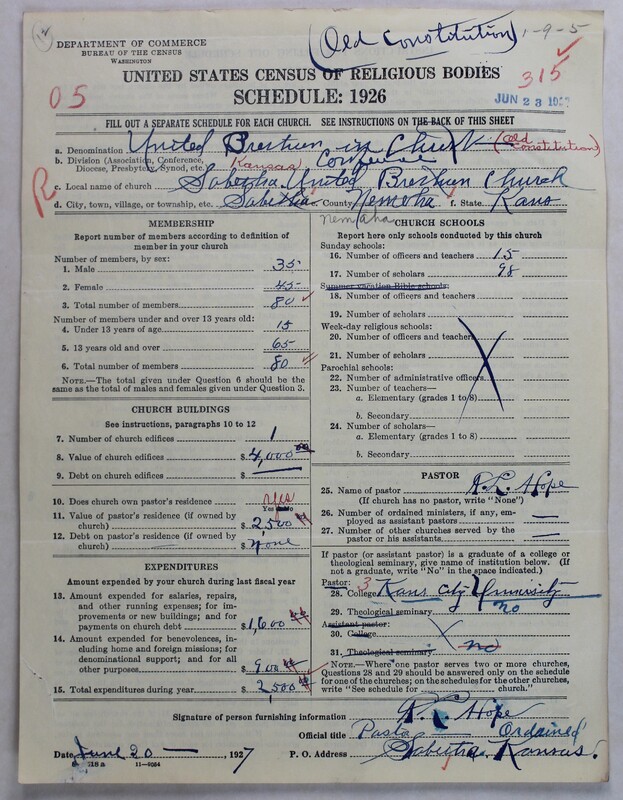 (Old Constitution) 1-9-5
DEPARTMENT OF COMMERCE
BUREAU OF THE CENSUS
WASHINGTON
UNITED STATES CENSUS OF RELIGIOUS BODIES
315
05
SCHEDULE: 1926
JUN 23
FILL OUT A SEPARATE SCHEDULE FOR EACH CHURCH. SEE INSTRUCTIONS ON THE BACK OF THIS SHEET
a. Denomination United Brethren in Christ (Old Constitution)
b. Division (Association, Conference, Diocese, Presbytery, Synod, etc. Kansas Conference
R
c. Local name of church Sabetha United Brethren Church
d. City, town, village, or township, etc. Sabetha County Nemeha f. State Kans
Nemaha
MEMBERSHIP
Report number of members according to definition of member in your church
Number of members, by sex:
1. Male 35
2. Female 45
3. Total number of members 80
Number of members under and over 13 years old:
4. Under 13 years of age 15
5. 13 years old and over 65
6. Total number of members 80
NOTE.—The total given under Question 6 should be the same as the total of males and females given under Question 3.
CHURCH BUILDINGS
See instructions, paragraphs 10 to 12
7. Number of church edifices 1
8. Value of church edifices $4,000.00
9. Debt on church edifices $
10. Does church own pastor's residence yes
Yes or No
11. Value of pastor's residence (if owned by church) $2,500
12. Debt on pastor's residence (if owned by church) $none
EXPENDITURES
Amount expended by your church during last fiscal year
13. Amount expended for salaries, repairs, and other running expenses; for improvements or new buildings; and for payments on church debt $1,600
14. Amount expended for benevolences, including home and foreign missions; for denominational support; and for all other purposes $900
15. Total expenditures during year $2500
CHURCH SCHOOLS
Report here only schools conducted by this church
Sunday schools:
16. Number of officers and teachers 15
17. Number of scholars 98
Summer vacation Bible schools:
18. Number of officers and teachers
19. Number of scholars
Week-day religious schools:
20. Number of officers and teachers
21. Number of scholars
Parochial schools:
22. Number of administrative officers
23. Number of teachers—
a. Elementary (grades 1 to 8)
b. Secondary
24. Number of scholars—
a. Elementary (grades 1 to 8)
b. Secondary
PASTOR
25. Name of pastor R. L. Hope
(If church has no pastor, write "None")
26. Number of ordained ministers, if any, employed as assistant pastors —
27. Number of other churches served by the pastor or his assistants —
If pastor (or assistant pastor) is a graduate of a college or theological seminary, give name of institution below. (If not a graduate, write "No" in the space indicated.)
Pastor: 3
28. College Kans City University
29. Theological seminary no
Assistant pastor:
30. College
31. Theological seminary no
NOTE.—Where one pastor serves two or more churches, Questions 28 and 29 should be answered only on the schedule for one of the churches; on the schedules for the other churches, write "See schedule for church."
Signature of person furnishing information R. L. Hope
Official title Pastor Ordained
Date June 20 — , 1927 P. O. Address Sabetha Kansas.
11-9084